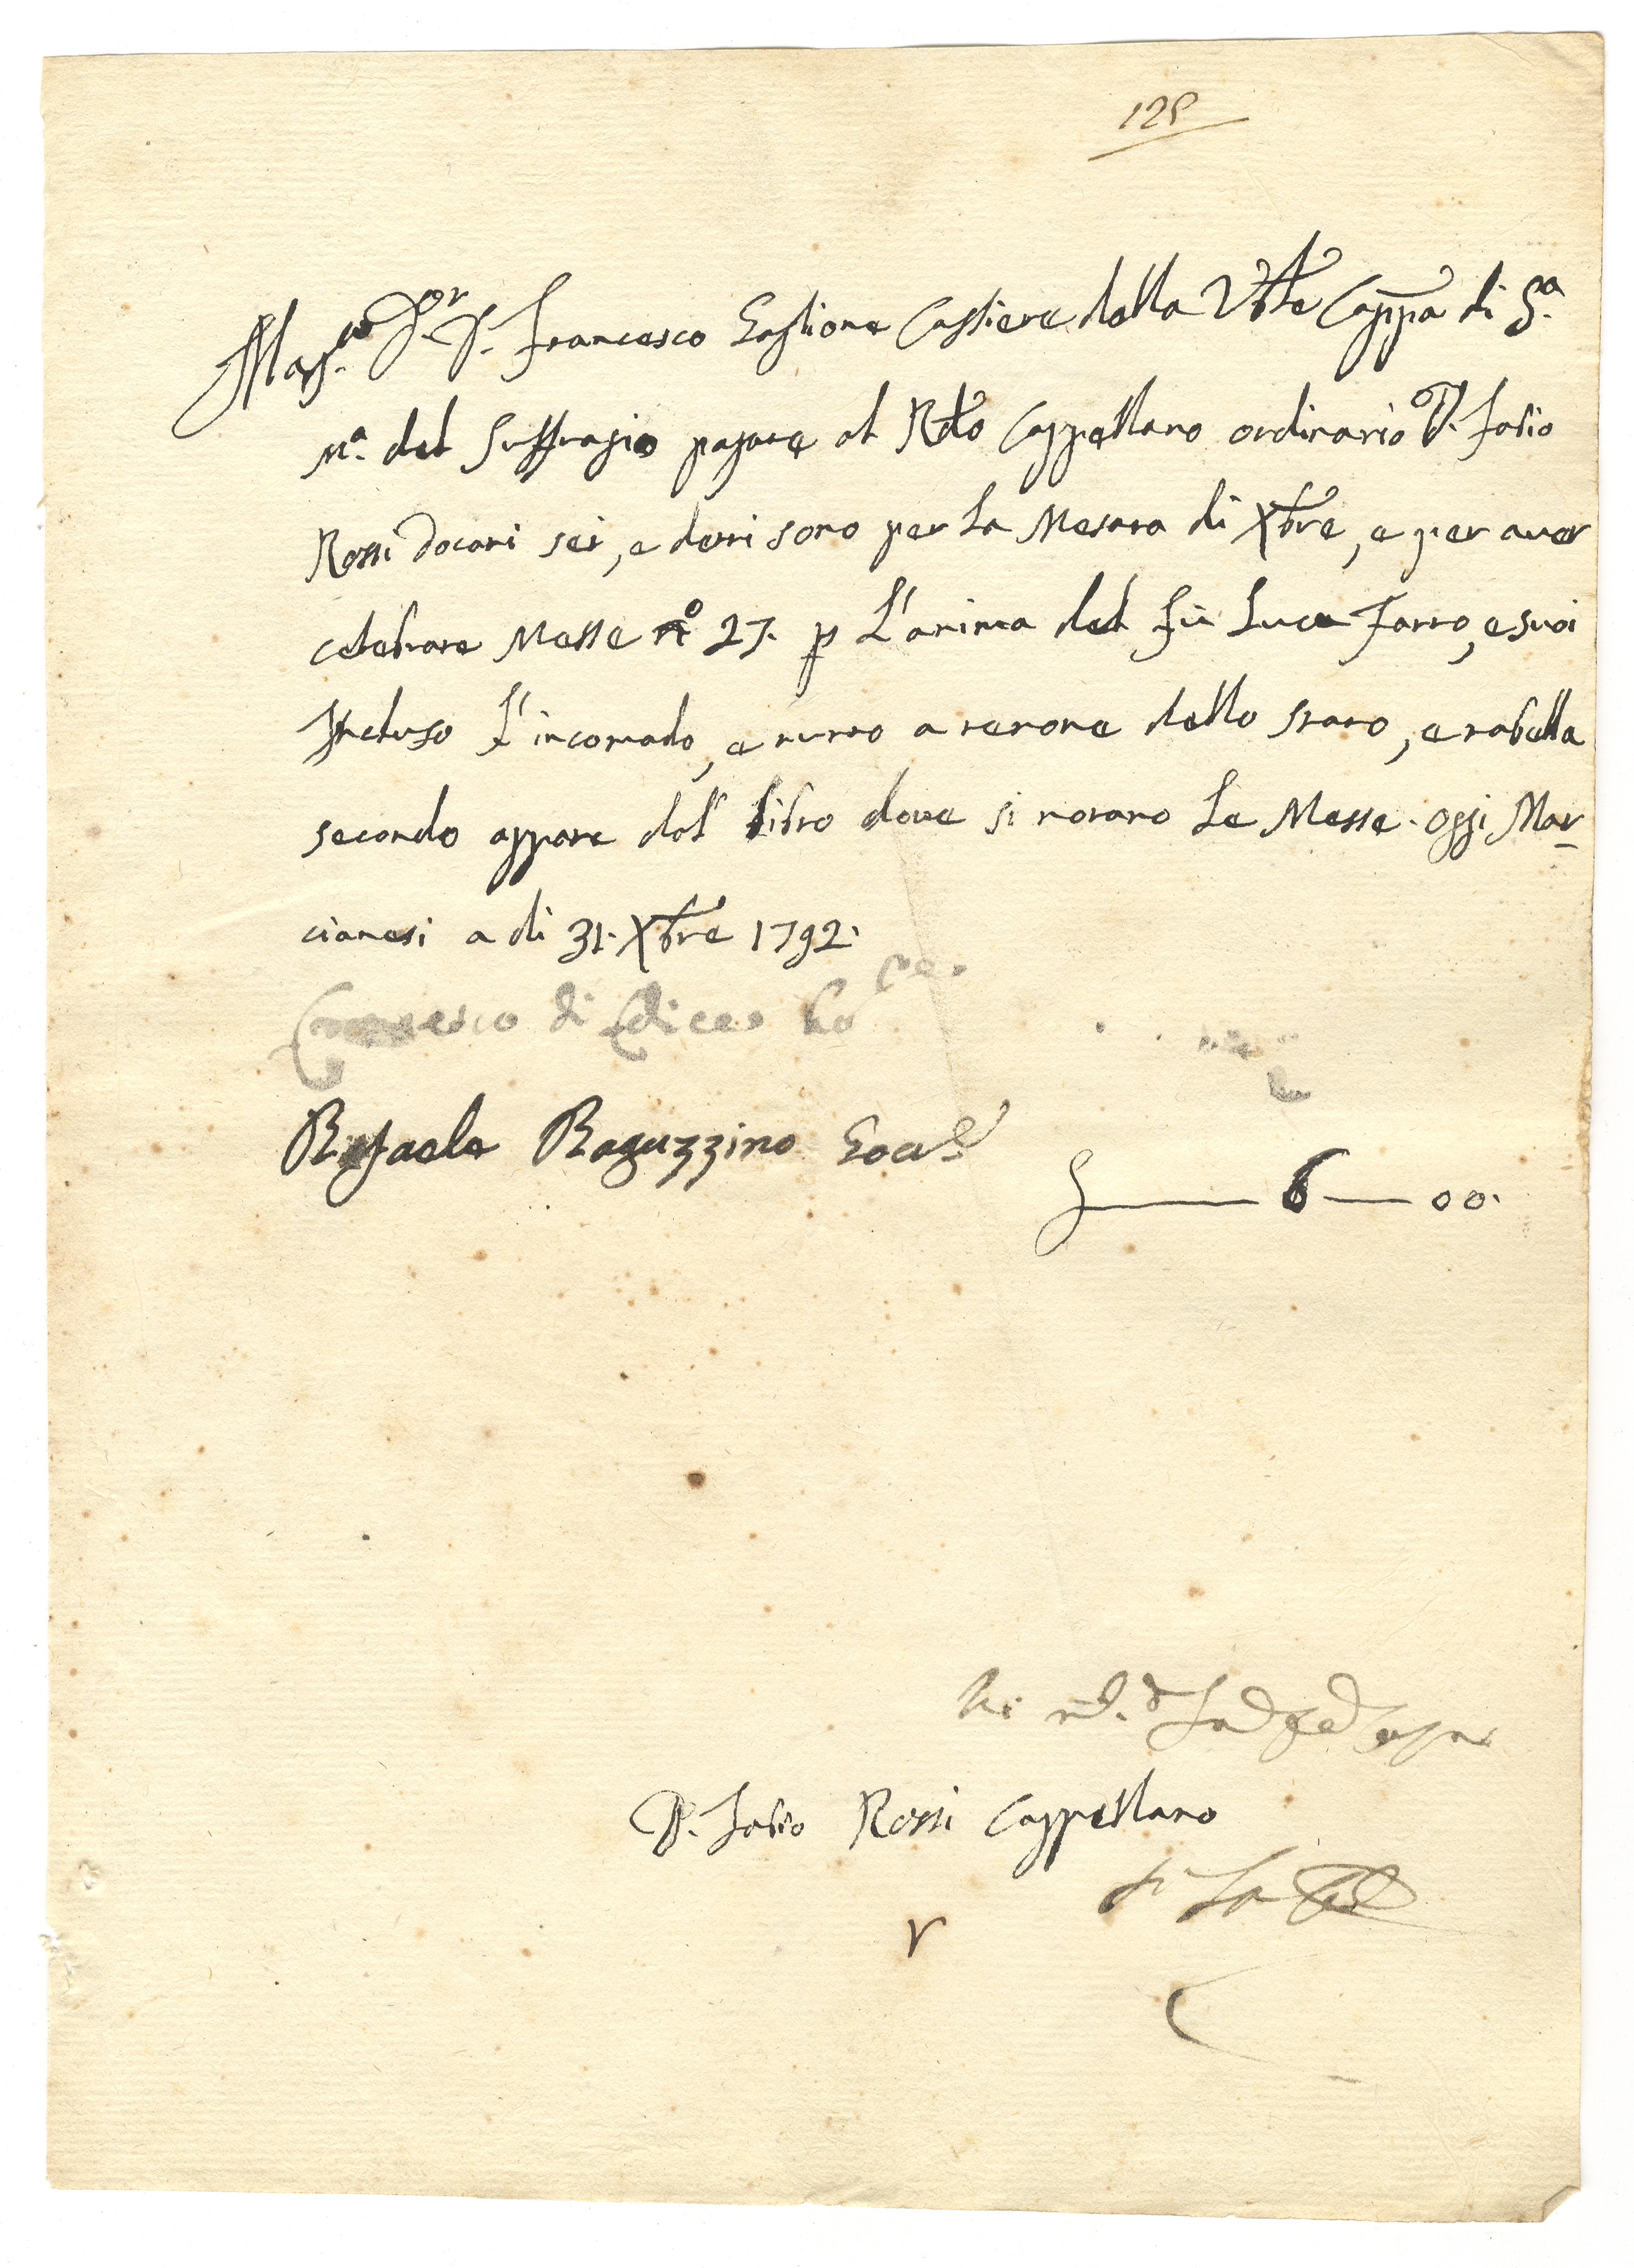 125
Mag.co D.r D. Francesco Gaglione Cassiere della Vble Cappa di S.a
M.a del Suffragio pagate al Rdo Cappellano ordinario D. Fabio
Rossi docati sei, e detti sono per la Mesata di Xbre, e per aver
celebrate Messe No 27. p l'anima del fù Luca Farro, e suoi
Incluso l'incomodo, e tutto a tenore dello stato, e tabella
secondo appare dal libro dove si notano le Messe. Oggi Mar-
cianesi a di 31. Xbre 1792.
di
Rafaele Raguzzino
6 — 00.
D. Fabio Rossi Cappellano